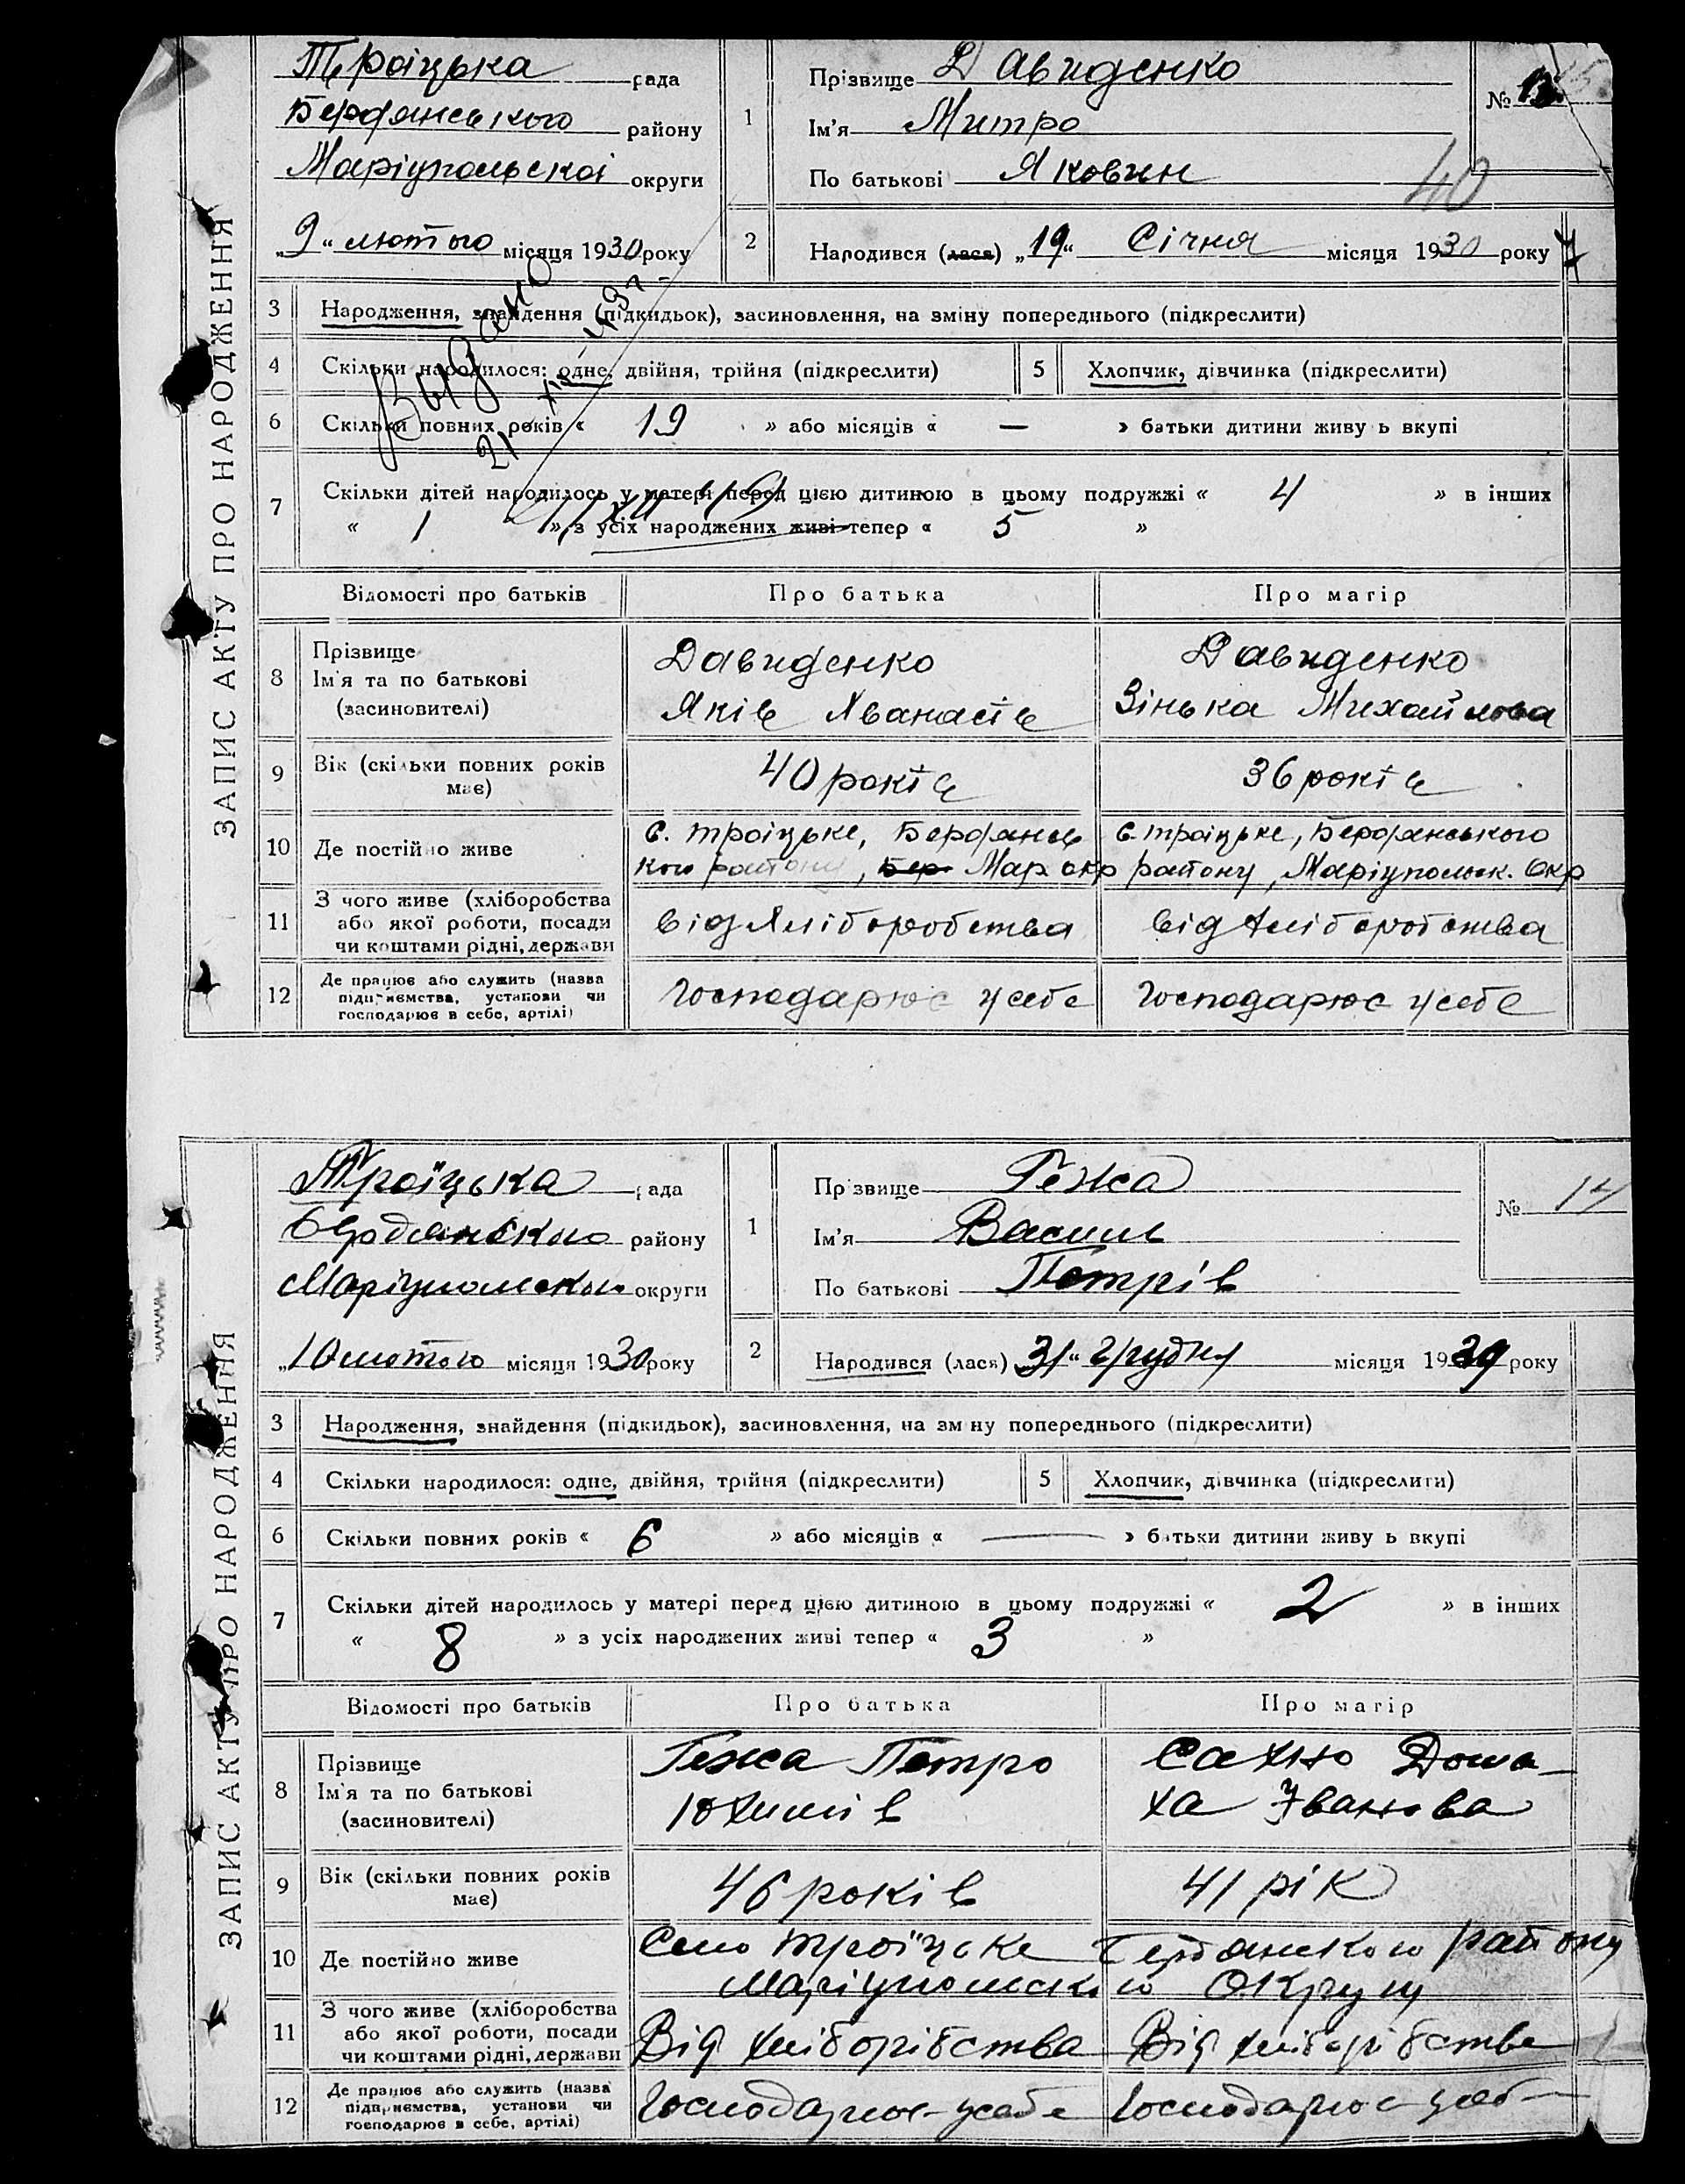 ЗАПИС АКТУ ПРО НАРОДЖЕННЯ
Троіцька рада
Бердянського району
Маріупольскоі округи
„9“ лютого місяця 1930 року
1 Прізвище Давиденко
Ім'я Митро
По батькові Яковин
№
40
2 Народився (лася) „19“ Січня місяця 1930 року
Выдано
21
3 Народження, знайдення (підкидьок), засиновлення, на зміну попереднього (підкреслити)
4 Скільки народилося: одне, двійня, трійня (підкреслити) 5 Хлопчик, дівчинка (підкреслити)
6 Скільки повних років « 19 » або місяців « — » батьки дитини живуть вкупі
7 Скільки дітей народилось у матері перед цією дитиною в цьому подружжі « 4 » в інших
« 1 » з усіх народжених живі тепер « 5 »
Відомості про батьків Про батька Про матір
8 Прізвище Ім'я та по батькові (засиновителі)
Давиденко Яків Аванасів
Давиденко Зінька Михайлова
9 Вік (скільки повних років має) 40 років 36 років
10 Де постійно живе
с. троіцьке, Бердянсь
кого району, Бер. Мар окр
с. троіцьке, Бердянського
району, Маріупольск. Окр
11 З чого живе (хліборобства
або якої роботи, посади
чи коштами рідні, держави
від хліборобства від хліборобства
12 Де працює або служить (назва
підприємства, установи чи
господарює в себе, артілі)
Господарює у себе Господарює у себе
ЗАПИС АКТУ ПРО НАРОДЖЕННЯ
Троїцька рада
Бердянского району
округи
„10 лютого місяця 1930 року
1 Прізвище Гежа
Ім'я Василь
По батькові Петрів
№ 14
2 Народився (лася) 31“ Грудня місяця 1929 року
3 Народження, знайдення (підкидьок), засиновлення, на зміну попереднього (підкреслити)
4 Скільки народилося: одне, двійня, трійня (підкреслити) 5 Хлопчик, дівчинка (підкреслити)
6 Скільки повних років « 6 » або місяців « — » батьки дитини живуть вкупі
7 Скільки дітей народилось у матері перед цією дитиною в цьому подружжі « 2 » в інших
« 8 » з усіх народжених живі тепер « 3 »
Відомості про батьків Про батька Про матір
8 Прізвище Ім'я та по батькові (засиновителі)
Гежа Петро
Юхимів
Сахно Дома-
ха Іванова
9 Вік (скільки повних років має) 46 років 41 рік
10 Де постійно живе
Село троїцьке Бердянского району
Маріупольского Округу
11 З чого живе (хліборобства
або якої роботи, посади
чи коштами рідні, держави
Від хліборібства Від хліборібства
12 Де працює або служить (назва
підприємства, установи чи
господарює в себе, артілі)
Господарює усебе Господарює усеб